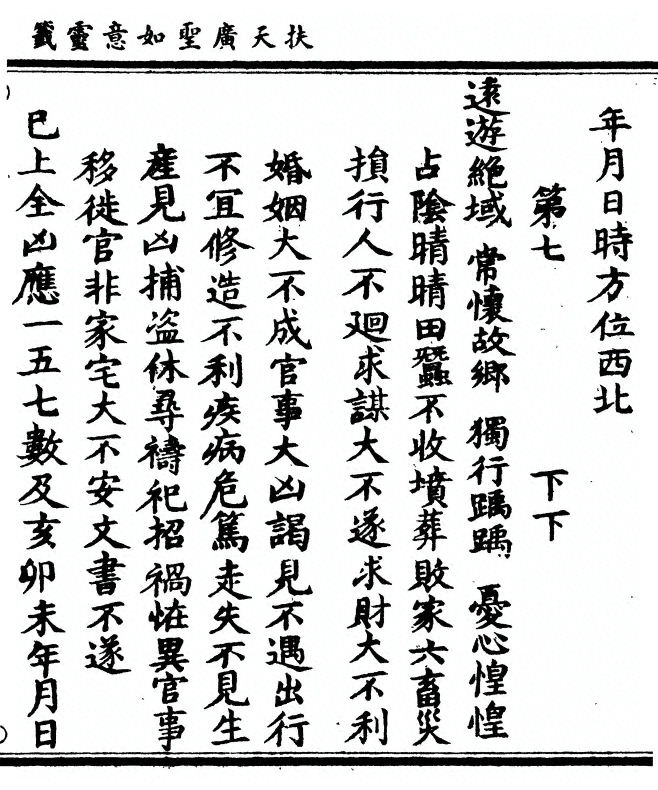 扶天廣聖如意靈籤
年月日時方位西北
第七 下下
遠遊絕域 常懷故鄉 獨行踽踽 憂心惶惶
占陰晴晴田蠶不收墳葬敗家六畜災
損行人不廻求謀大不遂求財大不利
婚姻大不成官事大凶謁見不遇出行
不宜修造不利疾病危篤走失不見生
產見凶捕盜休尋禱祀招禍恠異官事
移徙官非家宅大不安文書不遂
巳上全凶應一五七數及亥卯未年月日